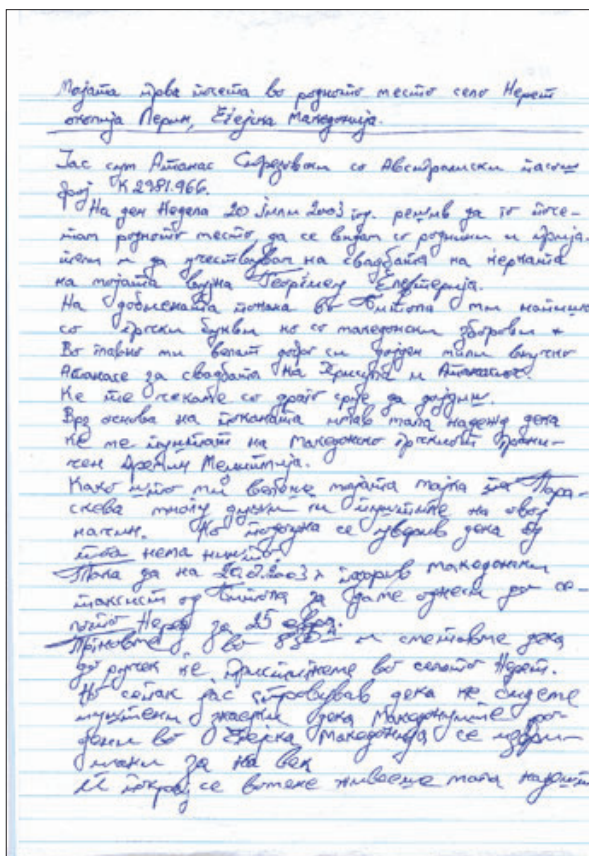 Мојата прва посета во родното место село Нерет
околија Лерин, Егејска Македонија.
Јас сум Атанас Стрезовски со Австралиски пасош
број К2981.966.
На ден Недела 20 Јули 2003 год. решив да го посе-
там родното место, да се видам со роднини и прија-
тели и да учествувам на свадбата на ќерката
на мојата вујна Елефтерија.
На добиената покана во Битола ми напиша
со грчки букви но со македонски зборови
Во главно ми велат добро си дојден мили внучко
Атанасе за свадбата на и Атанасиос.
Ќе те чекаме со драго срце да дојдиш.
Врз основа на поканата имав мала надеж дека
ќе ме пуштат на Македонско грчкиот грани-
чен Меџитлија.
Како што ми велеше мојата мајка Пара-
скева многу души ги пуштиле на овој
начин. Но подоцна се уверив дека од
тоа нема ништо
Така да на 20.7.2003 г македонски
таксист од Битола за да ме однеси до се-
лото Нерет за 25 евра.
Тргновме во 830 и сметавме дека
до ручек ќе пристигнеме во селото Нерет.
Но сепак јас стравував дека не сидеме
пуштени дека Македонците ро-
дени во Егејска Македонија се
за на век
И покрај се во мене живееше мала надеж